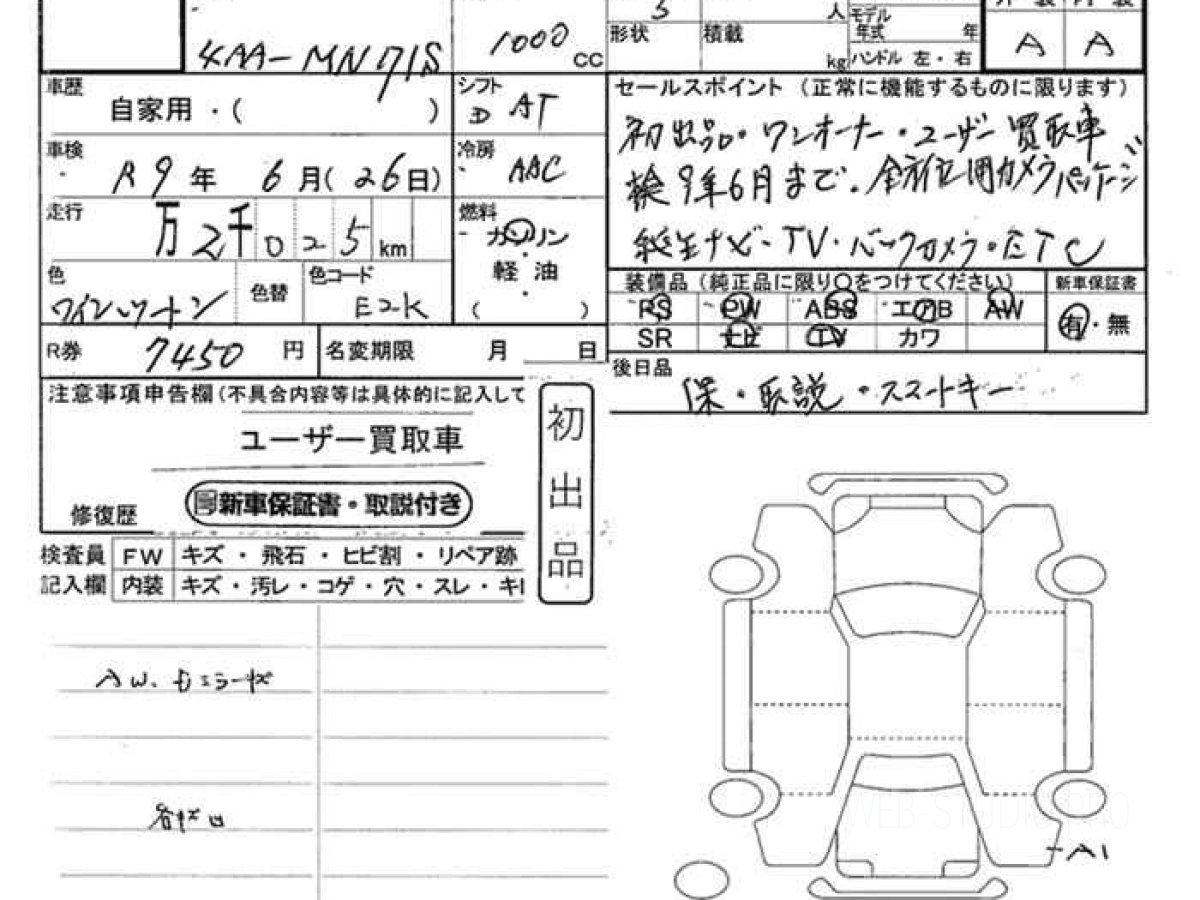 5 人 モデル
年式 年
4AA-MN71S 1000 cc 形状 積載 kg ハンドル 左・右 A A
車歴 自家用・( )
シフト D AT
セールスポイント (正常に機能するものに限ります)
初出品・ワンオーナー・ユーザー買取車
車検 R 9 年 6 月(26日)
冷房 AAC
検9年6月まで。全方位用カメラパッケージ
走行 万 2千 0 2 5 km
燃料 ガソリン
軽油
( )
純正ナビ・TV・バックカメラ・ETC
色 ワインツートン 色替 色コード E2K
装備品 (純正品に限り○をつけてください) 新車保証書
RS PW ABS エアB AW 有・無
SR ナビ TV カワ
R券 7450 円 名変期限 月 日
後日品 保・取説・スマートキー
注意事項申告欄(不具合内容等は具体的に記入して
ユーザー買取車
新車保証書・取説付き
修復歴
初出品
検査員 FW キズ・飛石・ヒビ割・リペア跡
記入欄 内装 キズ・汚レ・コゲ・穴・スレ・キ
AW、
A1
WEB-STUDIO.PRO